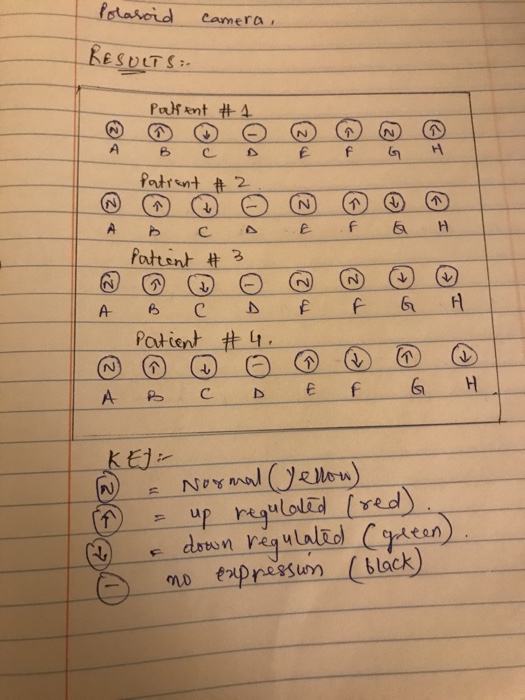 Polaroid camera.
RESULTS:-
Patient # 1
N ↑ ↓ - N ↑ N ↑
A B C D E F G H
Patient # 2
N ↑ ↓ - N ↑ ↓ ↑
A B C D E F G H
Patient # 3
N ↑ ↓ - N N ↓ ↓
A B C D E F G H
Patient # 4.
N ↑ ↓ - ↑ ↓ ↑ ↓
A B C D E F G H
KEY:-
N = Normal (Yellow)
↑ = up regulated (red).
↓ = down regulated (green).
- no expression (black)